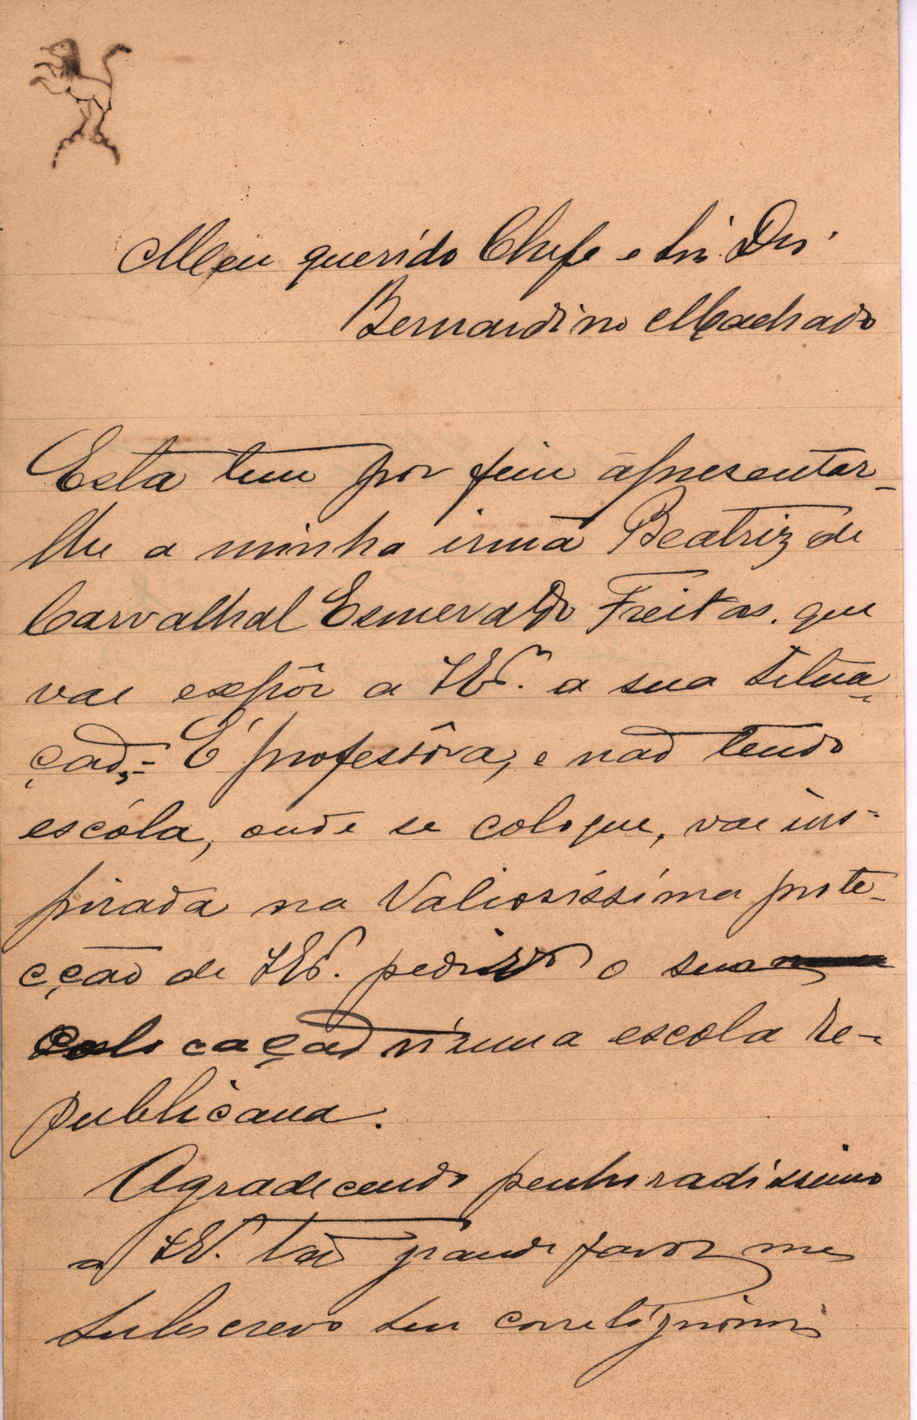 Meu querido Chefe e Snr. Dr.
Bernardino Machado
Esta tem por fim apresentar-
lhe a minha irmã Beatriz de
Carvalhal Esmeraldo Freitas. que
vae expôr a V. Ex.ª a sua situa-
ção,- É professôra, e não tendo
escóla, onde se coloque, vae ins-
pirada na Valiosíssima prote-
cção de V. Ex. pedir o sua
colocação n'uma escola re-
publicana.
Agradecendo penhoradissimo
a V. Ex. tão grande favor me
subscrevo seu